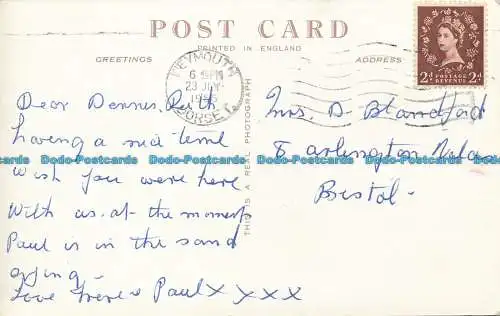 POST CARD
PRINTED IN ENGLAND
GREETINGS
ADDRESS
WEYMOUTH
6 PM
23 JLY
DORSET
POSTAGE
REVENUE
2d 2d
THIS IS A REAL PHOTOGRAPH
Dear Dennis, Ruth
having a nice time
wish you were here
with us. at the moment
Paul is in the sand
Love Irene Paul X X X X
Mrs. D Blandford
8 Arlington
Bristol.
Dodo-Postcards Dodo-Postcards Dodo-Postcards Dodo-Postcards Dodo-Postcards